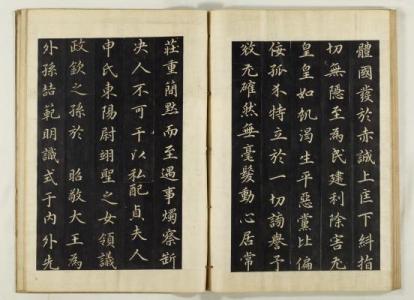 體國發於赤誠上匡下糾指
切無隱至為民建利除害尤
皇皇如飢渴生平惡黨比偏
孤介特立於一切謗譽予
敓尤確然無毫髮動心居常
莊重簡默而至遇事燭察斷
决人不可干以私配貞夫人
申氏東陽尉翊聖之女領議
政欽之孫於 昭敬大王為
外孫喆範明識式于內外先